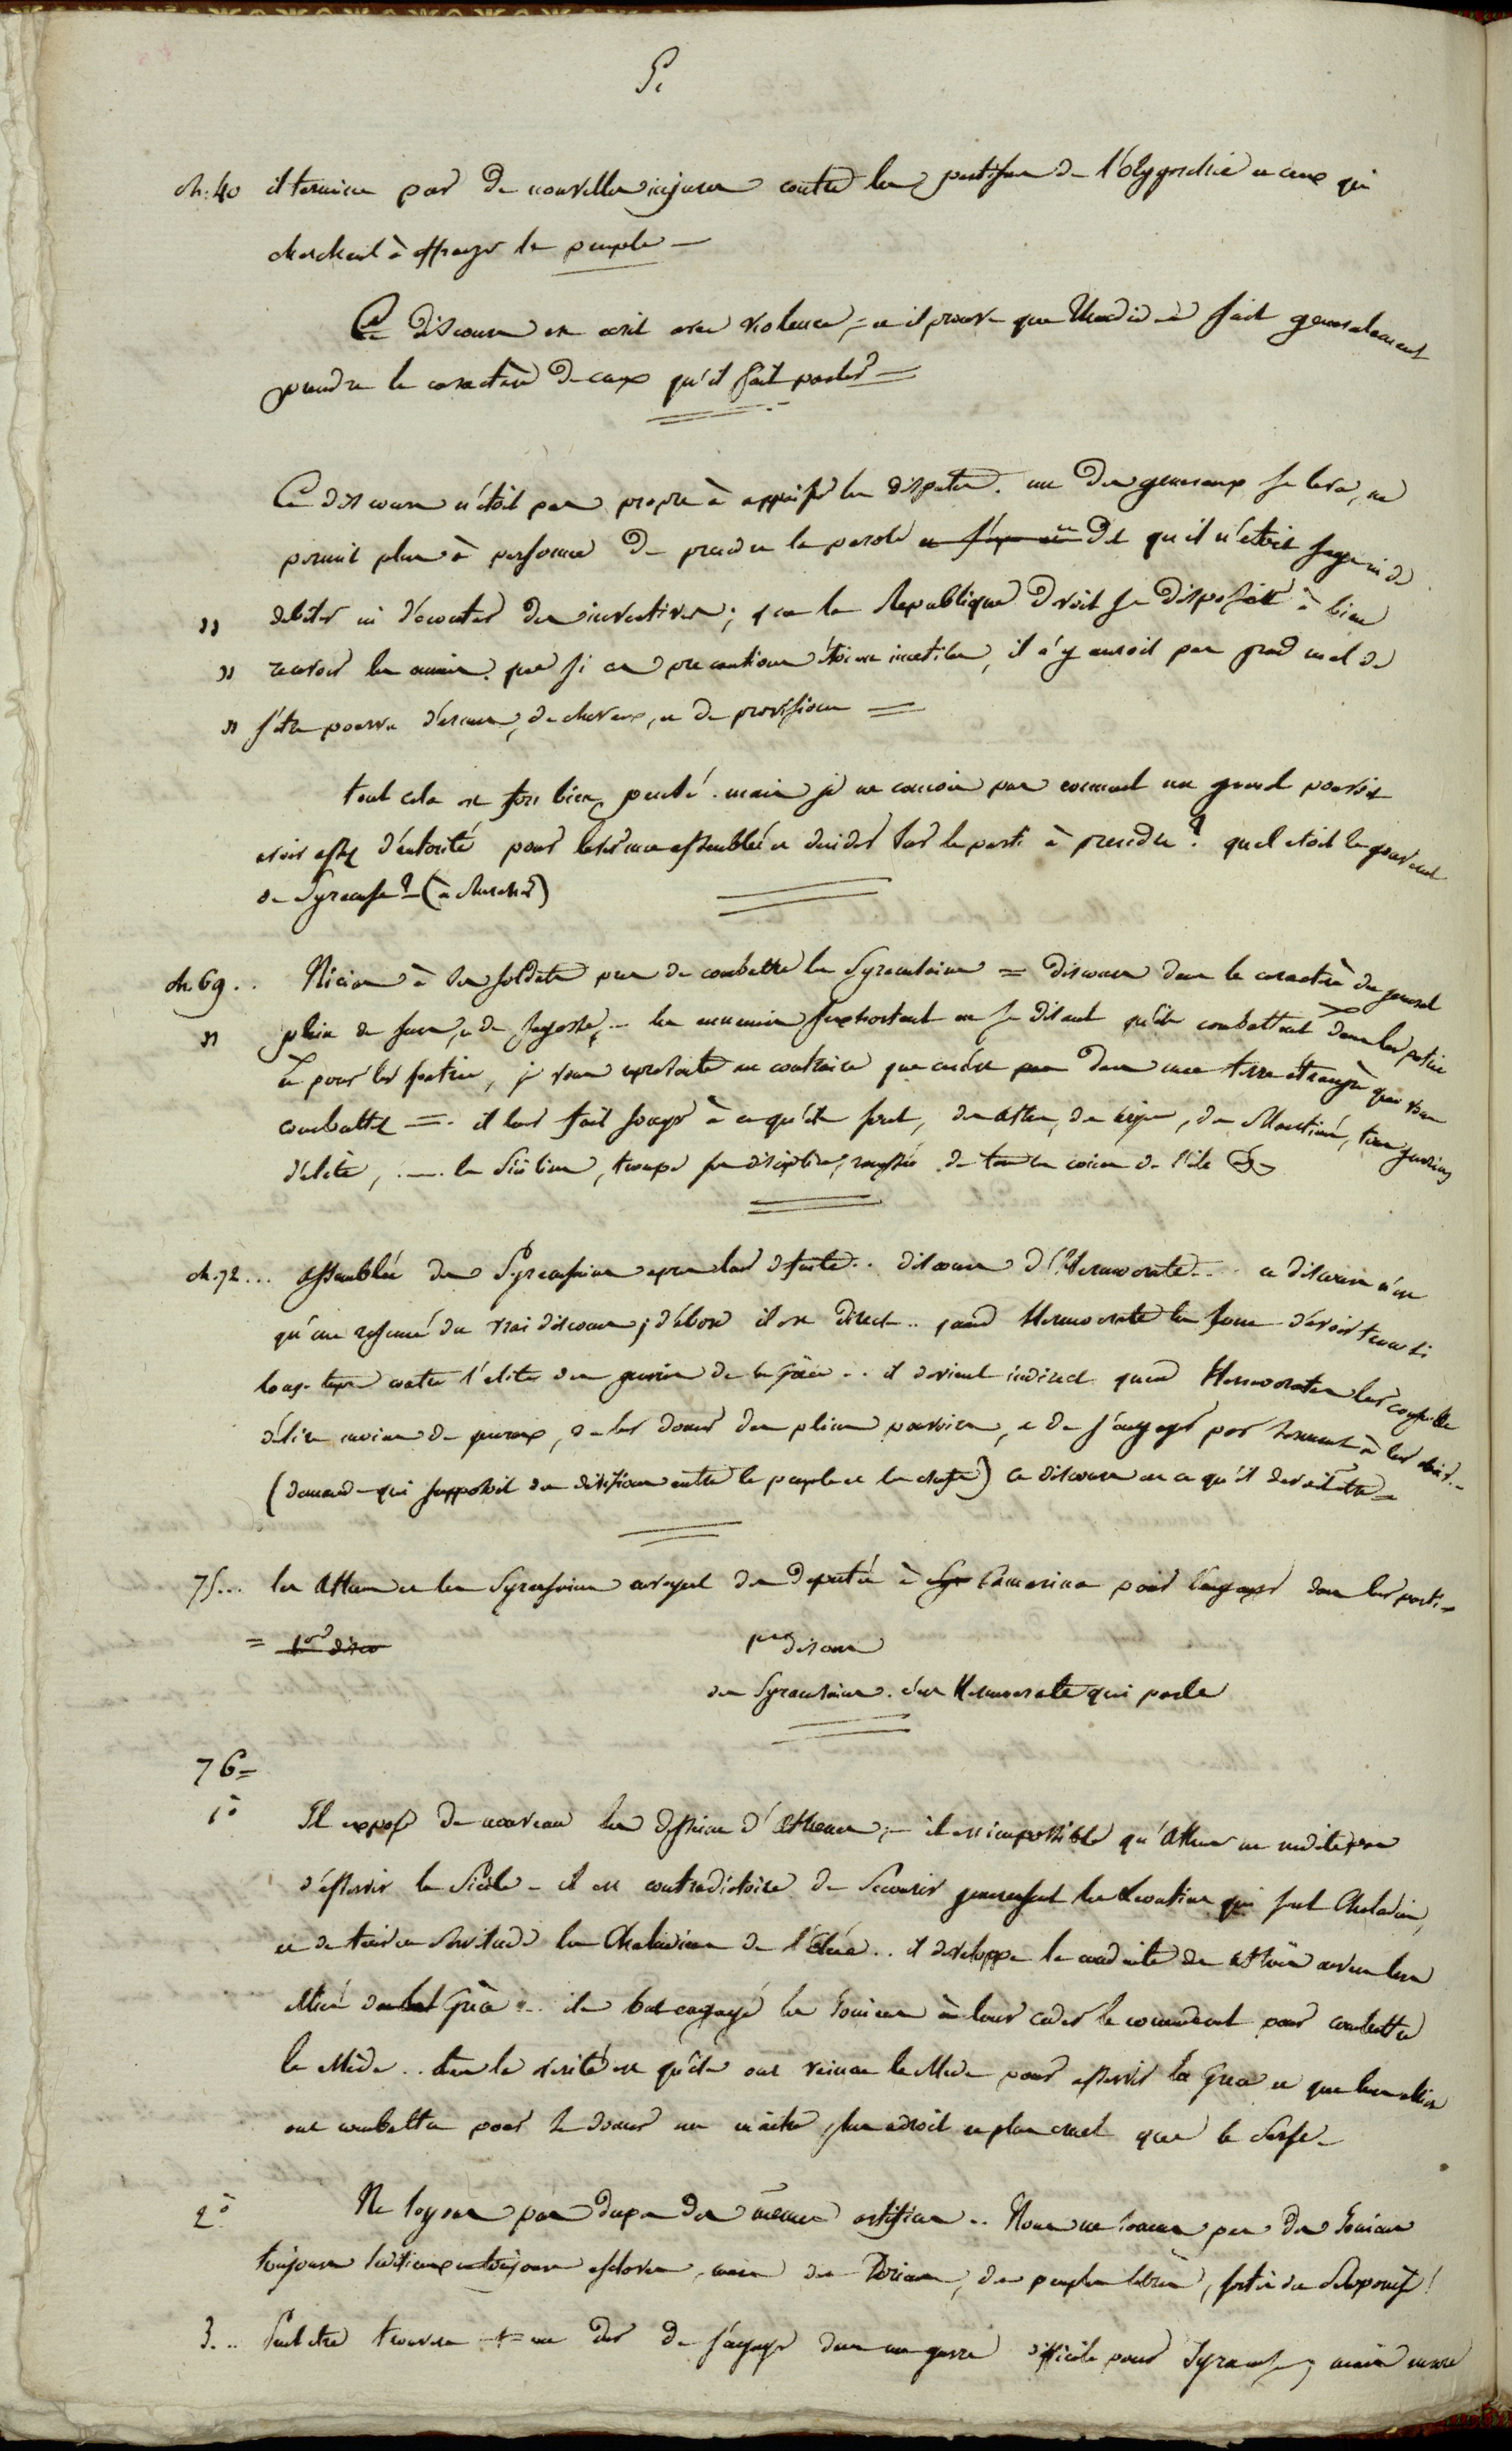 5.
ch. 40 il termine par de nouvelles injures contre les partisans de l'olygarchie et ceux qui
cherchent à effrayer le peuple —
Ce discours est ecrit avec violence, = et il prouve que Thucidide fait generalement
prendre le caractère de ceux qu'il fait parler =
Ce discours n'étoit pas propre à appaiser les disputes. un des generaux se leva, ne
permit plus à personne de prendre la parole et dit qu'il n'étoit sage ni de
" debiter ni d'ecouter des invectives; que la Republique devoit se disposer à bien
" recevoir les ennemis. que si ces precautions étoient inutiles, il n'y auroit pas grand mal de
" s'être pourvu d'armes, de chevaux, et de provisions =
tout cela est fort bien pensé. mais je ne conçois pas comment un general pouvoit
avoir assez d'autorité pour lever une assemblée et decider sur le parti à prendre? quel etoit le gouvernement
de Syracuse? (à chercher)
ch. 69.. Nicias à ses soldats pres de combattre les Syracusains = discours dans le caractère du general
" plein de sens, et de sagesse, — les ennemis s'exhortent en se disant qu'ils combattent dans leur patrie
et pour leur patrie, je vous represente au contraire que c'est dans une terre étrangère que vous
combattez =. il leur fait songer à ce qu'ils sont, des Ath., des Argiens, des Mantinéens, tous guerriers
d'élite, .— les Siciliens, troupes sans discipline, ramassées de tous les coins de l'ile
ch. 72... assemblée des Syracusains apres leur defaite.. discours d'Hermocrate... ce discours n'est
qu'un resumé du vrai discours; d'abord il est direct.. quand Hermocrate les loue d'avoir tenu si
long-tems contre l'elite des guerriers de la Grèce.. il devient indirect quand Hermocrate leur conseille
d'élire moins de generaux, de leur donner des pleins pouvoirs, et de s'engager par serment à leur obeir..
(demande qui supposoit des divisions entre le peuple et les chefs) ce discours est ce qu'il devoit être =
75... les Athen. et les Syracusains envoyent des deputés à Syr Camarina pour l'engager dans leur parti =
= 1er disco
1er discours
des Syracusains. c'est Hermocrate qui parle
76 =
1° Il expose de nouveau les desseins d'Athenes, — il est impossible qu'Athenes ne medite pas
d'asservir la Sicile – il est contradictoire de secourir genereusement les Leontins qui sont Chalcidiens,
et de tenir en servitude les Chalcidiens de l'Eubée.. il developpe la conduite des Athen. envers leurs
alliés dans la Grèce... ils ont engagé les Ioniens à leur ceder le commandement pour combattre
le Mède.. dans la verité est qu'ils ont vaincu le Mède pour asservir la Grece et que leurs alliés
ont combattu pour se donner un maitre plus adroit et plus cruel que le Perse –
2° Ne soyons pas dupes des mêmes artifices.. Nous ne sommes pas des Ioniens
toujours seditieux et toujours esclaves, mais des Doriens, des peuples libres, sortis du Peloponese!
3... Peut être trouvera-t-on dur de s'engager dans une guerre difficile pour Syracuse; mais encore